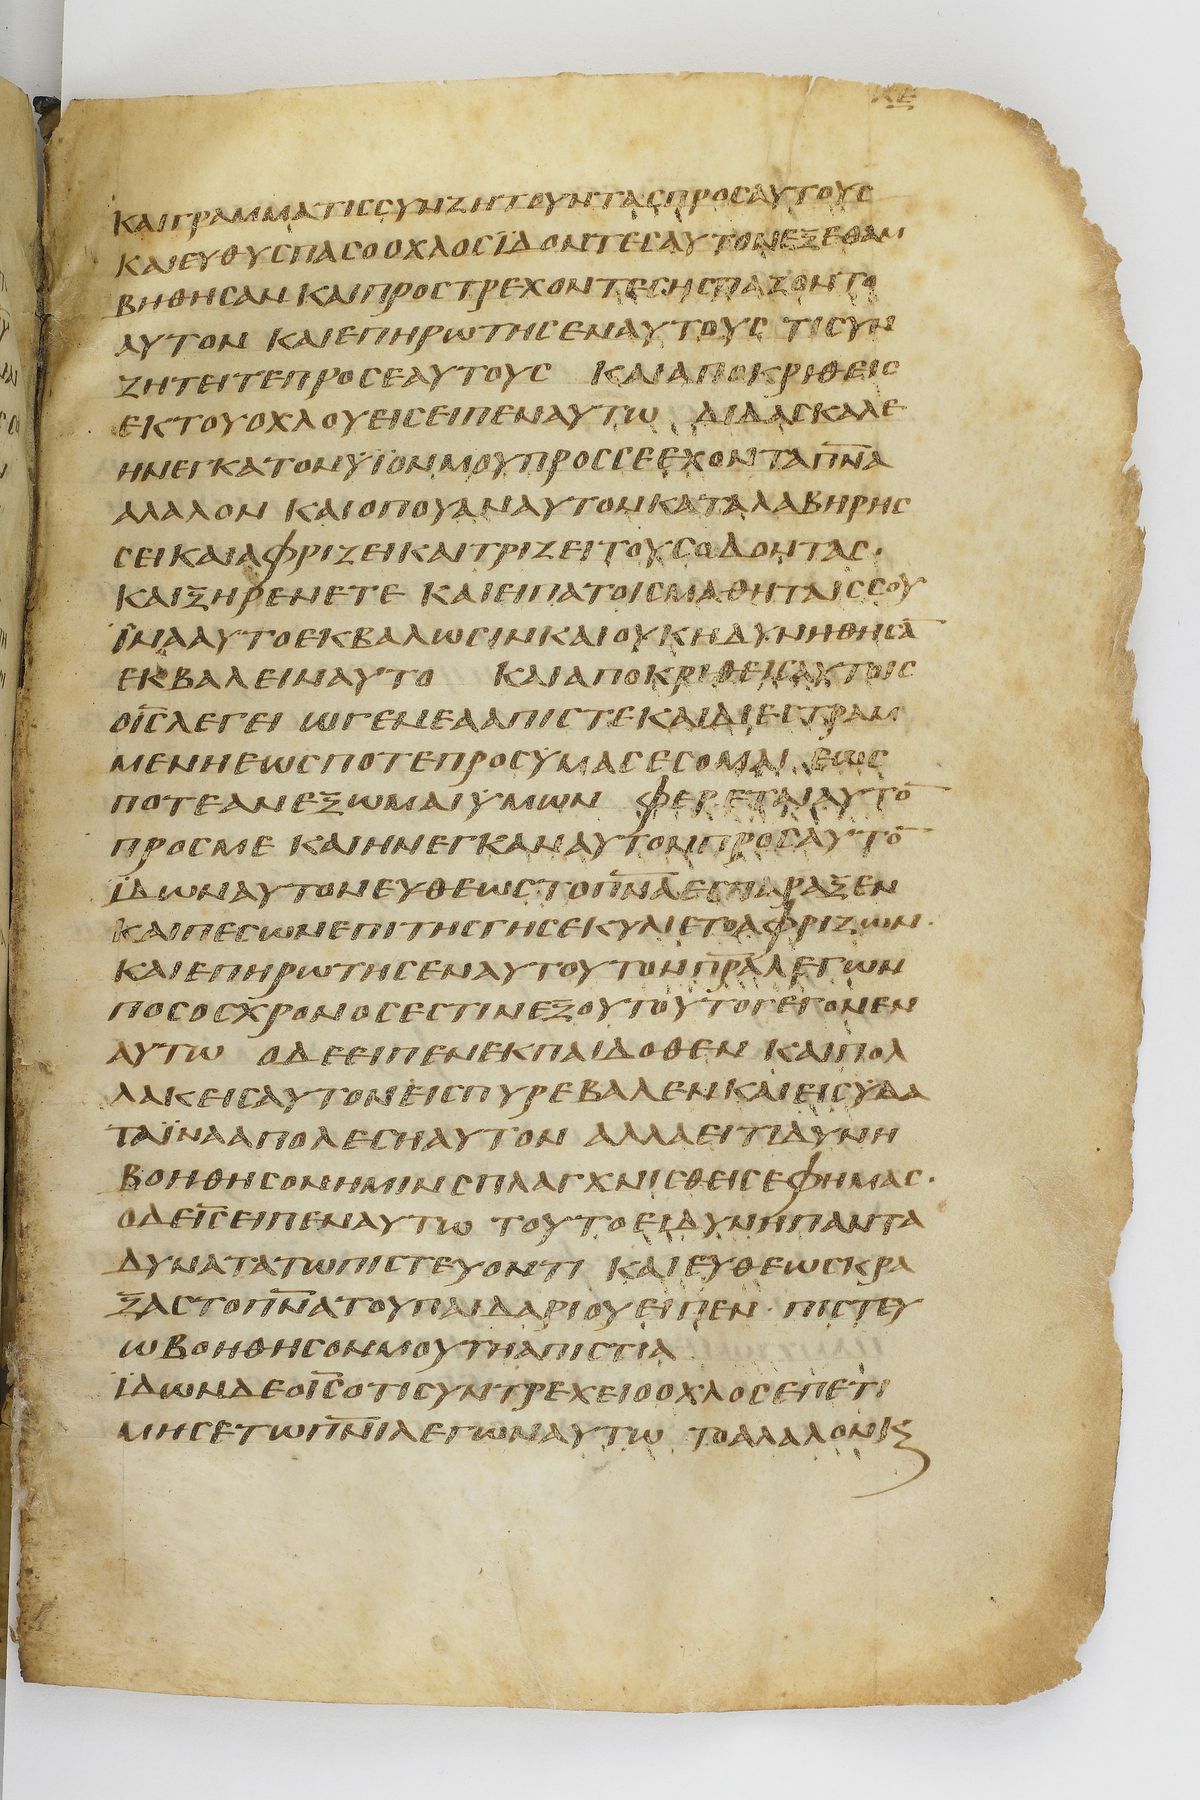 ΚΕ
ΚΑΙΓΡΑΜΜΑΤΙϹϹΥΝΖΗΤΟΥΝΤΑϹΠΡΟϹΑΥΤΟΥϹ
ΚΑΙΕΥΘΥϹΠΑϹΟΟΧΛΟϹΪΔΟΝΤΕϹΑΥΤΟΝΕΞΕΘΑΜ
ΒΗΘΗϹΑΝ ΚΑΙΠΡΟϹΤΡΕΧΟΝΤΕϹΗϹΠΑΖΟΝΤΟ
ΑΥΤΟΝ ΚΑΙΕΠΗΡΩΤΗϹΕΝΑΥΤΟΥϹ ΤΙϹΥΝ
ΖΗΤΕΙΤΕΠΡΟϹΕΑΥΤΟΥϹ ΚΑΙΑΠΟΚΡΙΘΕΙϹ
ΕΚΤΟΥΟΧΛΟΥΕΙϹΕΙΠΕΝΑΥΤΩ ΔΙΔΑϹΚΑΛΕ
ΗΝΕΓΚΑΤΟΝΥΪΟΝΜΟΥΠΡΟϹϹΕΕΧΟΝΤΑΠ̅Ν̅Α̅
ΑΛΑΛΟΝ ΚΑΙΟΠΟΥΑΝΑΥΤΟΝΚΑΤΑΛΑΒΗΡΗϹ
ϹΕΙΚΑΙΑΦΡΙΖΕΙΚΑΙΤΡΙΖΕΙΤΟΥϹΟΔΟΝΤΑϹ·
ΚΑΙΞΗΡΕΝΕΤΕ ΚΑΙΕΙΠΑΤΟΙϹΜΑΘΗΤΑΙϹϹΟΥ
ΪΝΑΑΥΤΟΕΚΒΑΛΩϹΙΝΚΑΙΟΥΚΗΔΥΝΗΘΗϹΑ̅
ΕΚΒΑΛΕΙΝΑΥΤΟ ΚΑΙΑΠΟΚΡΙΘΕΙϹΑΥΤΟΙϹ
ΟΙ̅Ϲ̅ΛΕΓΕΙ ΩΓΕΝΕΑΑΠΙϹΤΕΚΑΙΔΙΕϹΤΡΑΜ
ΜΕΝΗΕΩϹΠΟΤΕΠΡΟϹΥΜΑϹΕϹΟΜΑΙ ΕΩϹ
ΠΟΤΕΑΝΕΞΩΜΑΙΥΜΩΝ ΦΕΡΕΤΑΙΑΥΤΟ̅
ΠΡΟϹΜΕ ΚΑΙΗΝΕΓΚΑΝΑΥΤΟΝΠΡΟϹΑΥΤΟ̅
ΪΔΩΝΑΥΤΟΝΕΥΘΕΩϹΤΟΠ̅Ν̅Α̅ΕϹΠΑΡΑΞΕΝ
ΚΑΙΠΕϹΩΝΕΠΙΤΗϹΓΗϹΕΚΥΛΙΕΤΟΑΦΡΙΖΩΝ·
ΚΑΙΕΠΗΡΩΤΗϹΕΝΑΥΤΟΥΤΟΝΠ̅Ρ̅Α̅ΛΕΓΩΝ
ΠΟϹΟϹΧΡΟΝΟϹΕϹΤΙΝΕΞΟΥΤΟΥΤΟΓΕΓΟΝΕΝ
ΑΥΤΩ ΟΔΕΕΙΠΕΝΕΚΠΑΙΔΟΘΕΝ ΚΑΙΠΟΛ
ΛΑΚΕΙϹΑΥΤΟΝΕΙϹΠΥΡΕΒΑΛΕΝΚΑΙΕΙϹΥΔΑ
ΤΑΪΝΑΑΠΟΛΕϹΗΑΥΤΟΝ ΑΛΛΑΕΙΤΙΔΥΝΗ
ΒΟΗΘΗϹΟΝΗΜΙΝϹΠΛΑΓΧΝΙϹΘΕΙϹΕΦΗΜΑϹ·
ΟΔΕΙ̅Ϲ̅ΕΙΠΕΝΑΥΤΩ ΤΟΥΤΟΕΙΔΥΝΗΠΑΝΤΑ
ΔΥΝΑΤΑΤΩΠΙϹΤΕΥΟΝΤΙ ΚΑΙΕΥΘΕΩϹΚΡΑ
ΞΑϹΤΟΠ̅Ν̅Α̅ΤΟΥΠΑΙΔΑΡΙΟΥΕΙΠΕΝ· ΠΙϹΤΕΥ
ΩΒΟΗΘΗϹΟΝΜΟΥΤΗΑΠΙϹΤΙΑ
ΪΔΩΝΔΕΟΙ̅Ϲ̅ΟΤΙϹΥΝΤΡΕΧΕΙΟΟΧΛΟϹΕΠΕΤΙ
ΜΗϹΕΤΩΠ̅Ν̅Ι̅ΛΕΓΩΝΑΥΤΩ ΤΟΑΛΑΛΟΝϏ